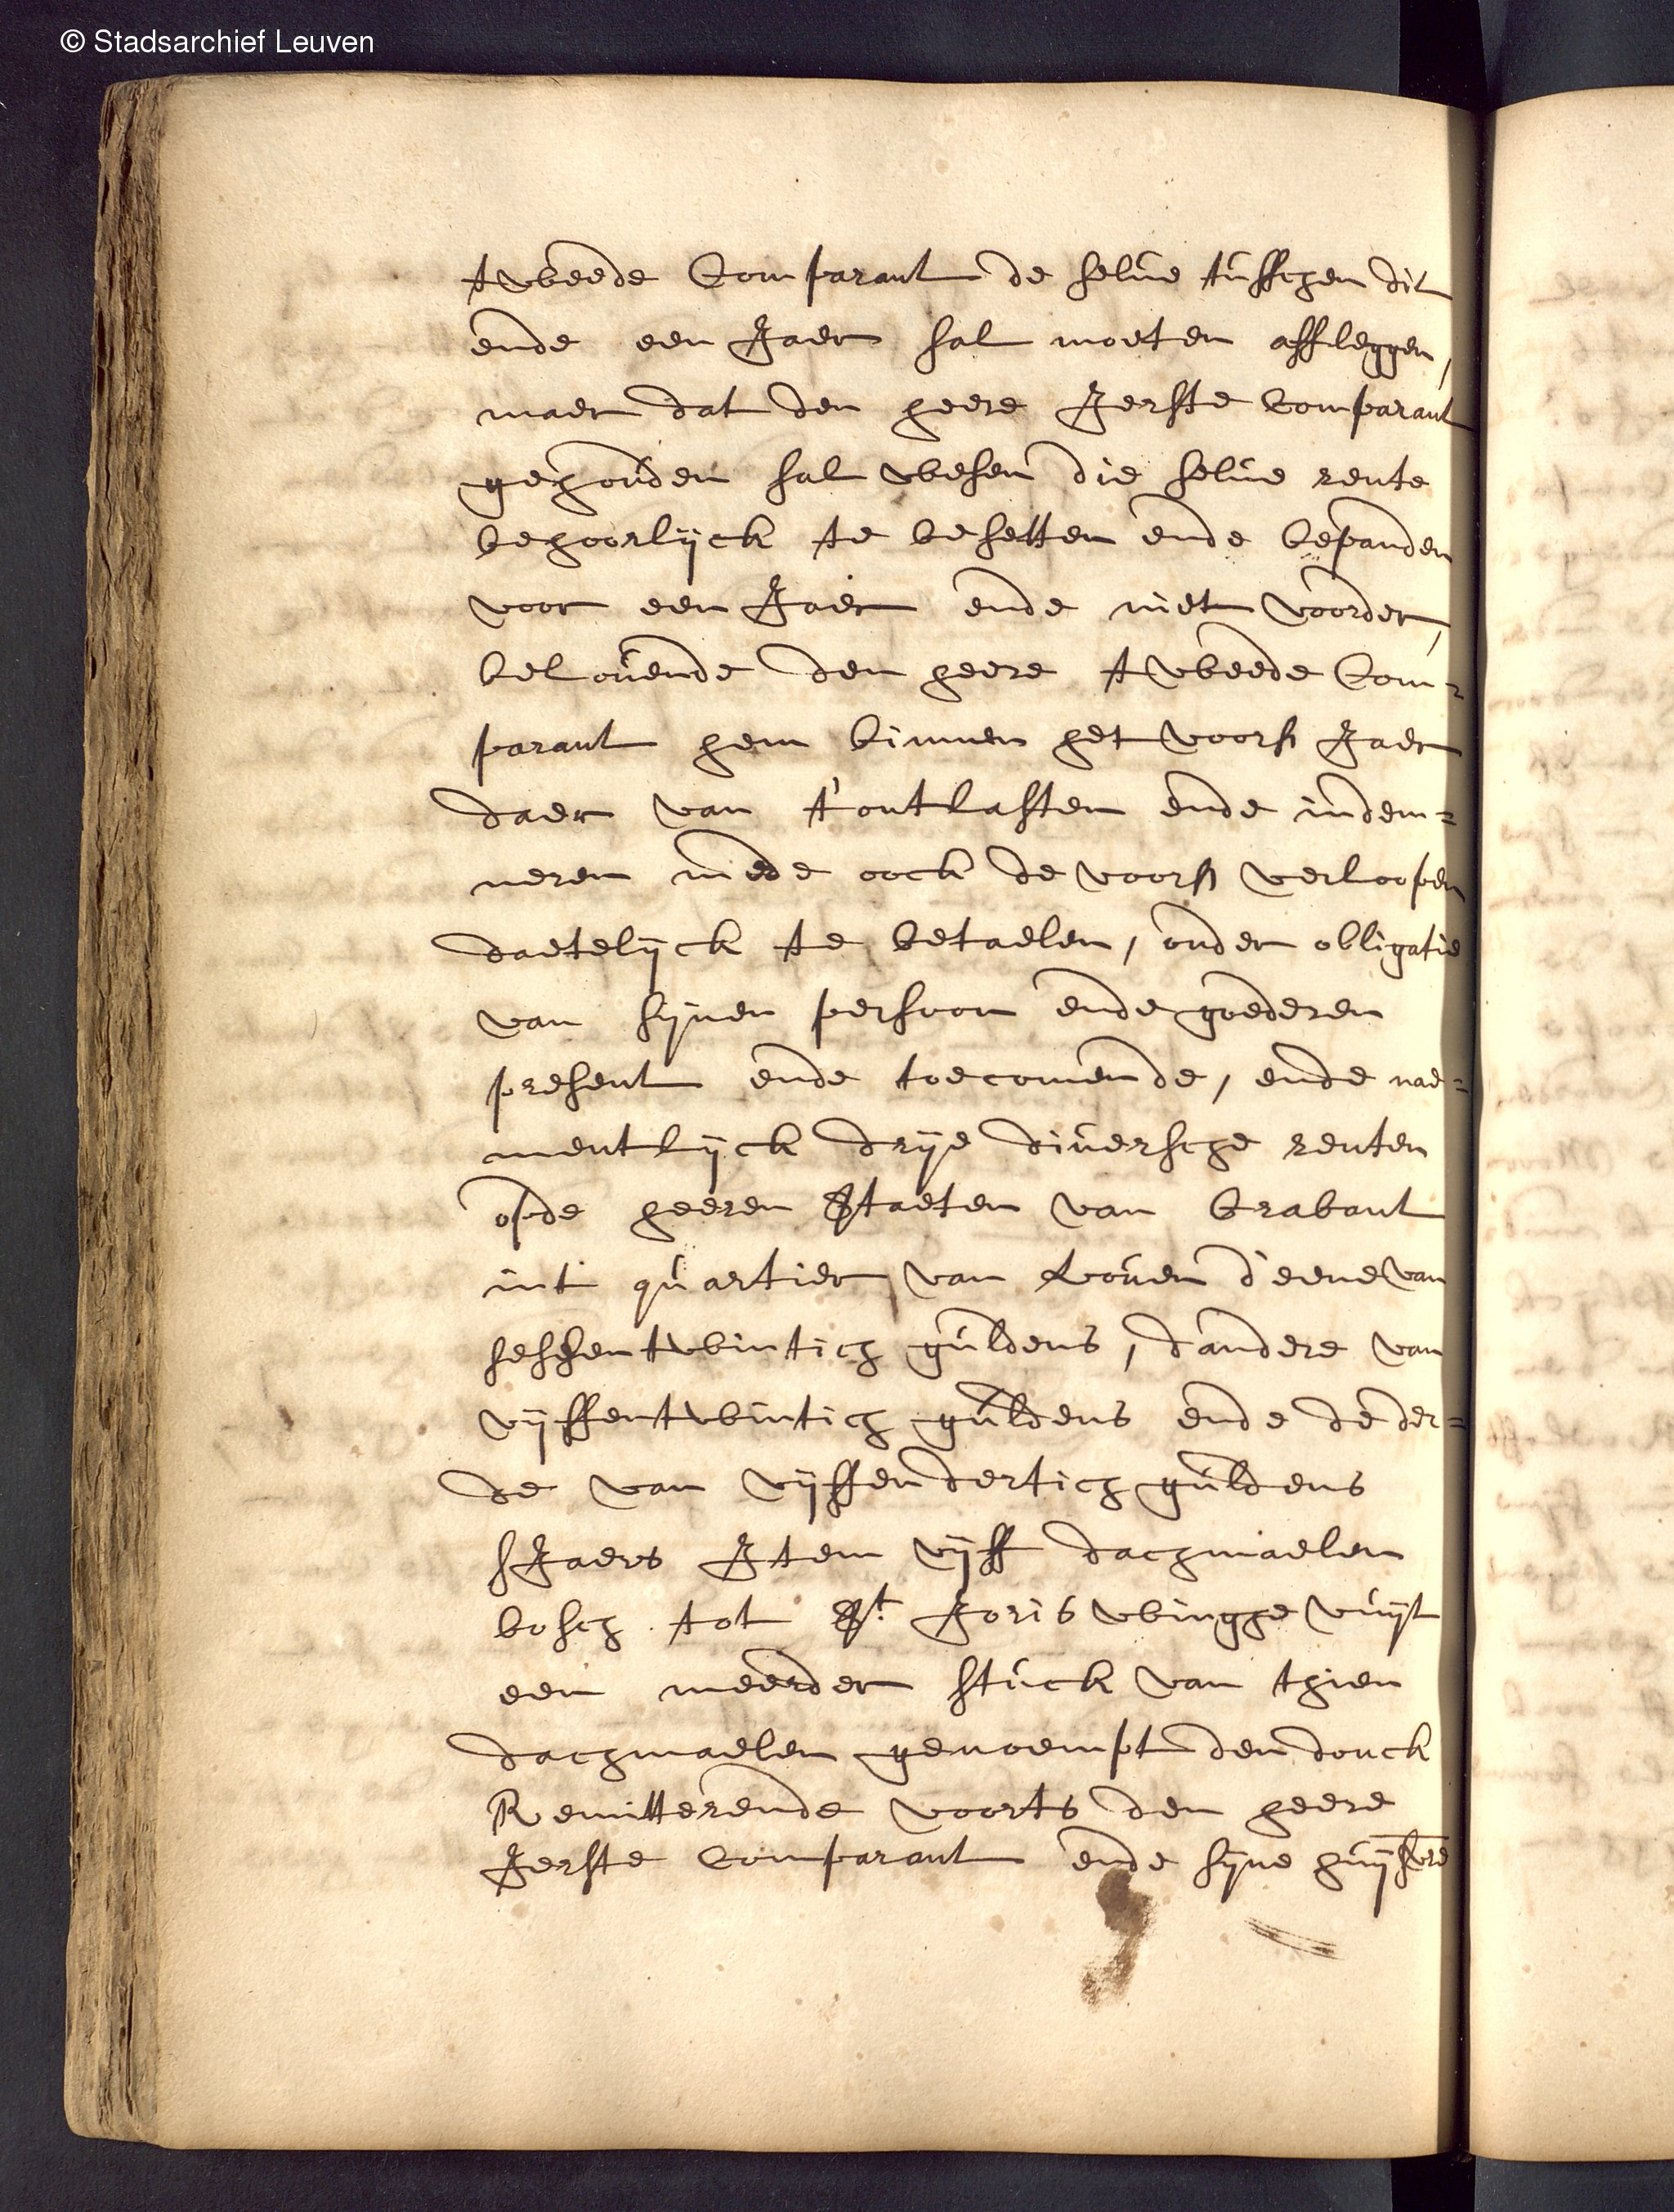 © Stadsarchief Leuven
tweede Comparant de selue tusschen dit
ende een Jaer sal moeten affleggen,
maer dat den heere Jerste Comparant
gehouden sal wesen die selue rente
behoorlijck te besetten ende bepanden
voor een Jaer ende niet voorder,
belouende den heere tweede Com=
parant hem binnen het voors Jaer
daer van t'ontlasten ende indem=
neren mede oock de voors verloopen
daetelijck te betaelen, onder obligatie
van sijnen persoon ende goederen
present ende toecomende, ende nae=
mentlijck drije diuersche renten
opde heeren Staeten van brabant
int quartier van Louen d'eene van
sessentwintich guldens, dandere van
vijffentwintich guldens ende de der=
de van vijffendertich guldens
sJaers Item vijff dachmaelen
bosch tot St. Joris winghe vuijt
een meerder stuck van thien
dachmaelen genoempt den donck
Remitterende voorts den heere
Jerste Comparant ende sijne huijsvre